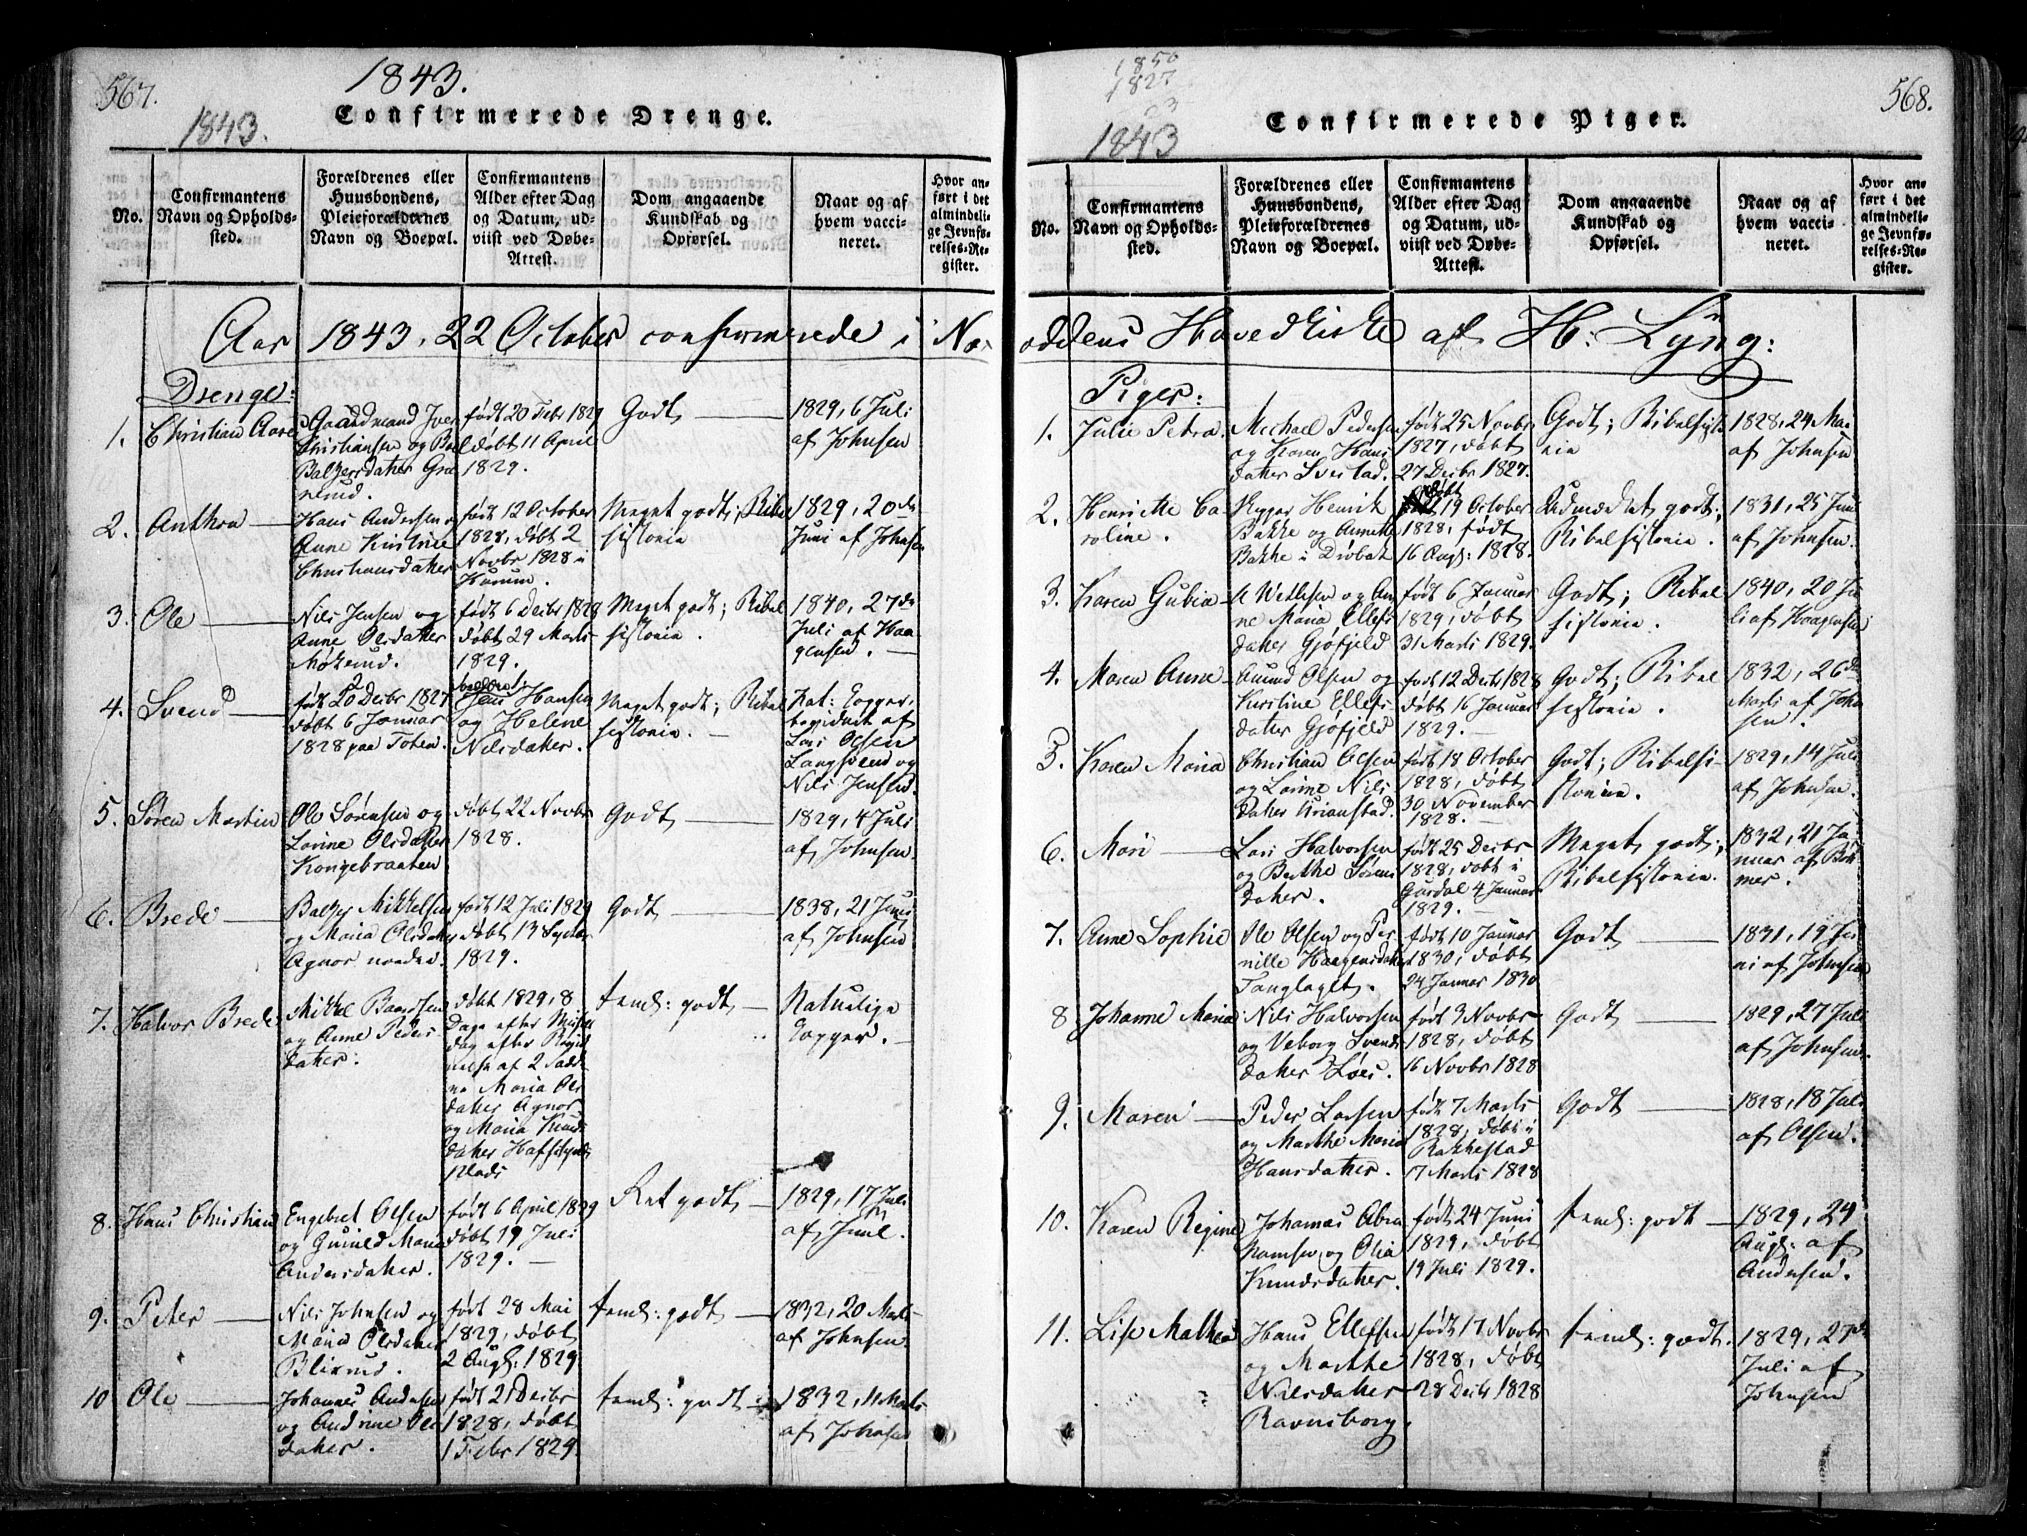 567.
1843.
1843.
Confirmerede Drenge.
No.
Confirmantens
Navn og Opholds-
sted.
Forældrenes eller
Huusbondens,
Pleieforældrenes
Navn og Boepæl.
Confirmantens
Alder efter Dag
og Datum, ud-
viist ved Døbe-
Attest.
Dom angaaende
Kundskab og
Opførsel.
Naar og af
hvem vacci-
neret.
Hvor an-
ført i det
almindeli-
ge Jevnfø-
relses-Re-
gister.
Aar 1843, 22 October confirmerede i Næs
Drenge:
1. Christian
Gaardmand Iver
Christiansen og
Balzersdatter
født 20 Febr 1829
døbt 11 April
1829.
Godt
1829, 6 Juli
af Johnsen
2. Anthon
Hans Andersen og
Anne Kirstine
Christiansdatter
født 12 October
1828, døbt 2
Novbr 1828 i
Hurum.
Meget godt; Bibel
historie
1829, 20de
Juni af Johnsen
3. Ole
Nils Jensen og
Anne Olsdatter
født 6 Decbr 1828
døbt 29 Marts
1829.
Meget godt; Bibel
historie.
1840, 27de
Juli af Haa
gensen.
4. Svend
født 20 Decbr 1827
døbt 6 Januar
1828 paa Toten.
Jens Hansen
og Helene
Nilsdatter.
Meget godt; Bibel
historie.
Nat: Kopper,
bevidnet af
Lars Olsen
og
Nils Jensen.
5. Søren Martin
Ole Sørensen og
Lovine Olsdatter
Kongebraaten
døbt 22 Novbr
1828.
Godt
1829, 4 Juli
af Johnsen.
6. Brede
Balzer Mikkelsen
og Maria Olsdatter
Agnor nordre.
født 12 Juli 1829
døbt 13 Septbr
1829.
Godt
1838, 21 Juni
af Johnsen
7. Halvor Brede
Mikkel Baardsen
og Anne Peders
datter.
døbt 1829, 8
Dage efter
dag efter
af 2 Fadd
re Maria Ols
datter Agnor
og Maria Knuds
datter
Plads
temel: godt
Naturlige
Kopper.
8. Hans Christian
Engebret Olsen
og Gunild Maria
Andersdatter.
født 6 April 1829
døbt 19 Juli
1829.
Ret godt
1829, 17 Juli
af Juul.
9. Peter
Nils Johnsen og
Maria Olsdatter
Blixrud.
født 28 Mai
1829, døbt
2 Augs: 1829
temel: godt
1832, 20 Marts
af Johnsen.
10 Ole
Johannes Andersen
og Andrine Ols
datter.
født 21 Decbr
1828, døbt
1 Febr 1829.
temel: godt
1832, 11 Marts
af Johnsen
568.
1850
1827
1843
Confirmerede Piger.
No.
Confirmantens
Navn og Opholds-
sted.
Forældrenes eller
Huusbondens,
Pleieforældrenes
Navn og Boepæl.
Confirmantens
Alder efter Dag
og Datum, ud-
viist ved Døbe-
Attest.
Dom angaaende
Kundskab og
Opførsel.
Naar og af
hvem vacci-
neret.
Hvor an-
ført i det
almindeli-
ge Jevnfø-
relses-Re-
gister.
oddens Hovedkirke af H: Lyng:
Piger:
1. Julie Petra
Michael Pedersen
og Karen Hans
datter Svestad.
født 25 Novbr
1827, døbt
27 Decbr 1827.
Godt; Bibelhisto
rie
1828, 24 Mai
af Johnsen.
2. Henriette Ca
roline.
Skipper Henrik
Bakke og Annette
Bakke i Drøbak
døbt 19 October
1828, født
16 Augs: 1828.
Udmærket godt;
Bibelhistorie.
1831, 25 Juni
af Johnsen.
3. Karen Gubia
Wetlesen og An
ne Maria Ellefs
datter Gjøfjeld
født 6 Januar
1829, døbt
31 Marts 1829.
Godt; Bibel
historie.
1840, 20 Ju
li af Haagensen
4. Maren Anne
Amund Olsen og
Kirstine Ellefs
datter Gjøfjeld
født 12 Decbr 1828
døbt 16 Januar
1829.
Godt; Bibel
historie.
1832, 26de
Marts af John
sen.
5. Karen Maria
Christian Olsen
og Lovine Nils
datter
født 18 October
1828, døbt
30 November
1828.
Godt; Bibelhi-
storie.
1829, 14 Juli
af Johnsen.
6. Mari
Lars Halvorsen
og Berthe Sørens
datter.
født 25 Decbr
1828, døbt i
Gausdal 4 Januar
1829.
Meget godt;
Bibelhistorie.
1832, 21 Ja-
nuar af Brø
mer.
7. Anne Sophie
Ole Olsen og Per
nille Haagensdatter
Fanglaget.
født 10 Januar
1830, døbt
24 Januar 1830
Godt
1831, 19 Ju
ni af Johnsen
8 Johanne Maria
Nils Halvorsen
og Veborg Svends
datter
født 3 Novbr
1828, døbt
16 Novbr 1828
Godt
1829, 27 Juli
af Johnsen.
9. Maren
Peder Larsen
og Marthe Maria
Hansdatter.
født 7 Marts
1828, døbt i
Rakkestad
17 Marts 1828
Godt
1828, 18 Juli
af Olsen.
10. Karen Regine
Johannes Abra
hamsen og Olia
Knudsdatter.
født 24 Juni
1829, døbt
19 Juli 1829.
temel: godt
1829, 24
Augs: af
Andersen.
11. Lise Mathea
Hans Ellefsen
og Marthe
Nilsdatter
Ravnsborg.
født 17 Novbr
1828, døbt
28 Decbr 1828
temel: godt.
1829, 27de
Juli af
Johnsen